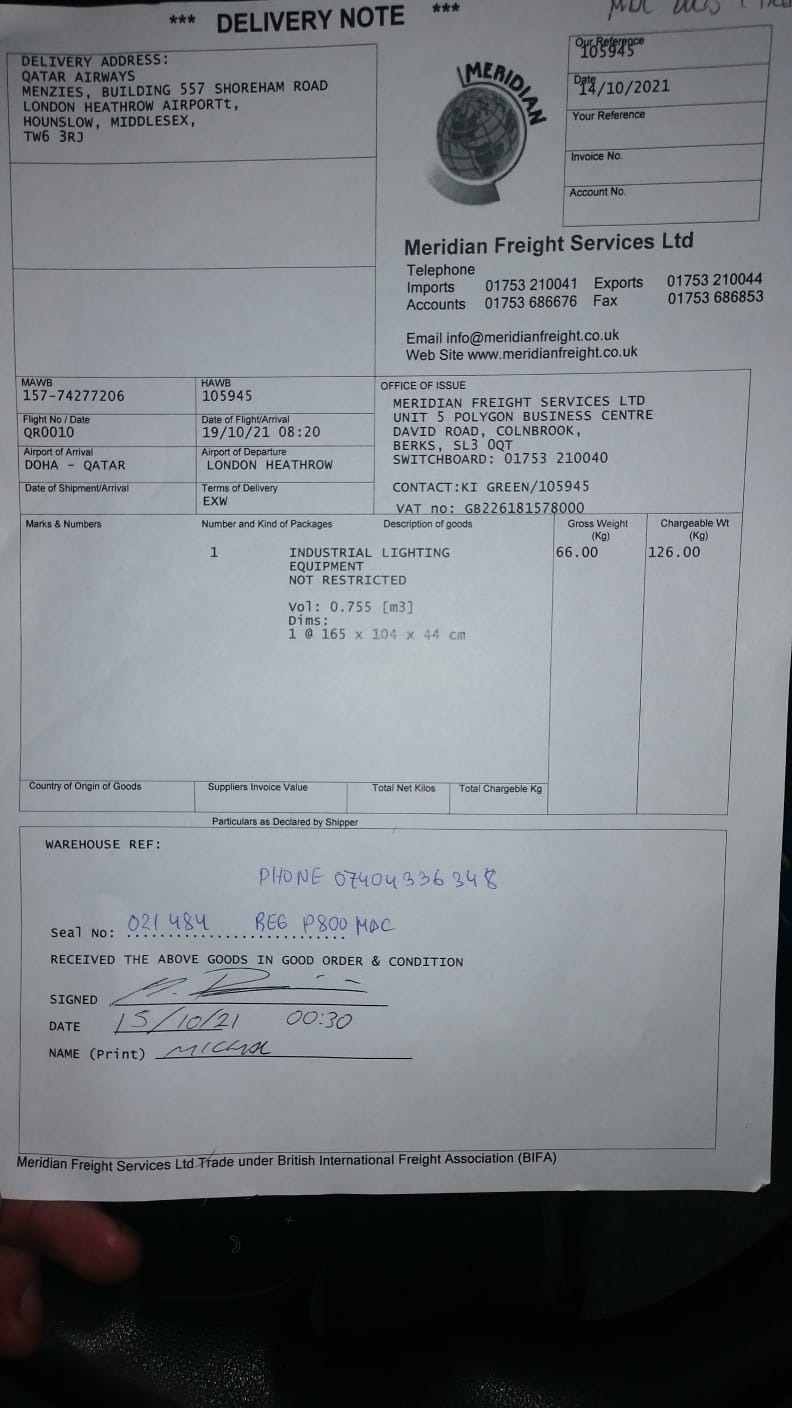 *** DELIVERY NOTE ***
DELIVERY ADDRESS:
QATAR AIRWAYS
MENZIES, BUILDING 557 SHOREHAM ROAD
LONDON HEATHROW AIRPORTt,
HOUNSLOW, MIDDLESEX,
TW6 3RJ
MERIDIAN
Our Reference
105945
Date
14/10/2021
Your Reference
Invoice No.
Account No.
Meridian Freight Services Ltd
Telephone
Imports 01753 210041 Exports 01753 210044
Accounts 01753 686676 Fax 01753 686853
Email info@meridianfreight.co.uk
Web Site www.meridianfreight.co.uk
MAWB HAWB
157-74277206 105945
Flight No / Date Date of Flight/Arrival
QR0010 19/10/21 08:20
Airport of Arrival Airport of Departure
DOHA - QATAR LONDON HEATHROW
Date of Shipment/Arrival Terms of Delivery
EXW
OFFICE OF ISSUE
MERIDIAN FREIGHT SERVICES LTD
UNIT 5 POLYGON BUSINESS CENTRE
DAVID ROAD, COLNBROOK,
BERKS, SL3 0QT
SWITCHBOARD: 01753 210040
CONTACT:KI GREEN/105945
VAT no: GB226181578000
Marks & Numbers Number and Kind of Packages Description of goods Gross Weight (Kg) Chargeable Wt (Kg)
1 INDUSTRIAL LIGHTING 66.00 126.00
EQUIPMENT
NOT RESTRICTED
Vol: 0.755 [m3]
Dims:
1 @ 165 x 104 x 44 cm
Country of Origin of Goods Suppliers Invoice Value Total Net Kilos Total Chargeble Kg
Particulars as Declared by Shipper
WAREHOUSE REF:
PHONE 07404336348
Seal No: 021484 REG P800 MDC
RECEIVED THE ABOVE GOODS IN GOOD ORDER & CONDITION
SIGNED
DATE 15/10/21 00:30
NAME (Print)
Meridian Freight Services Ltd Trade under British International Freight Association (BIFA)